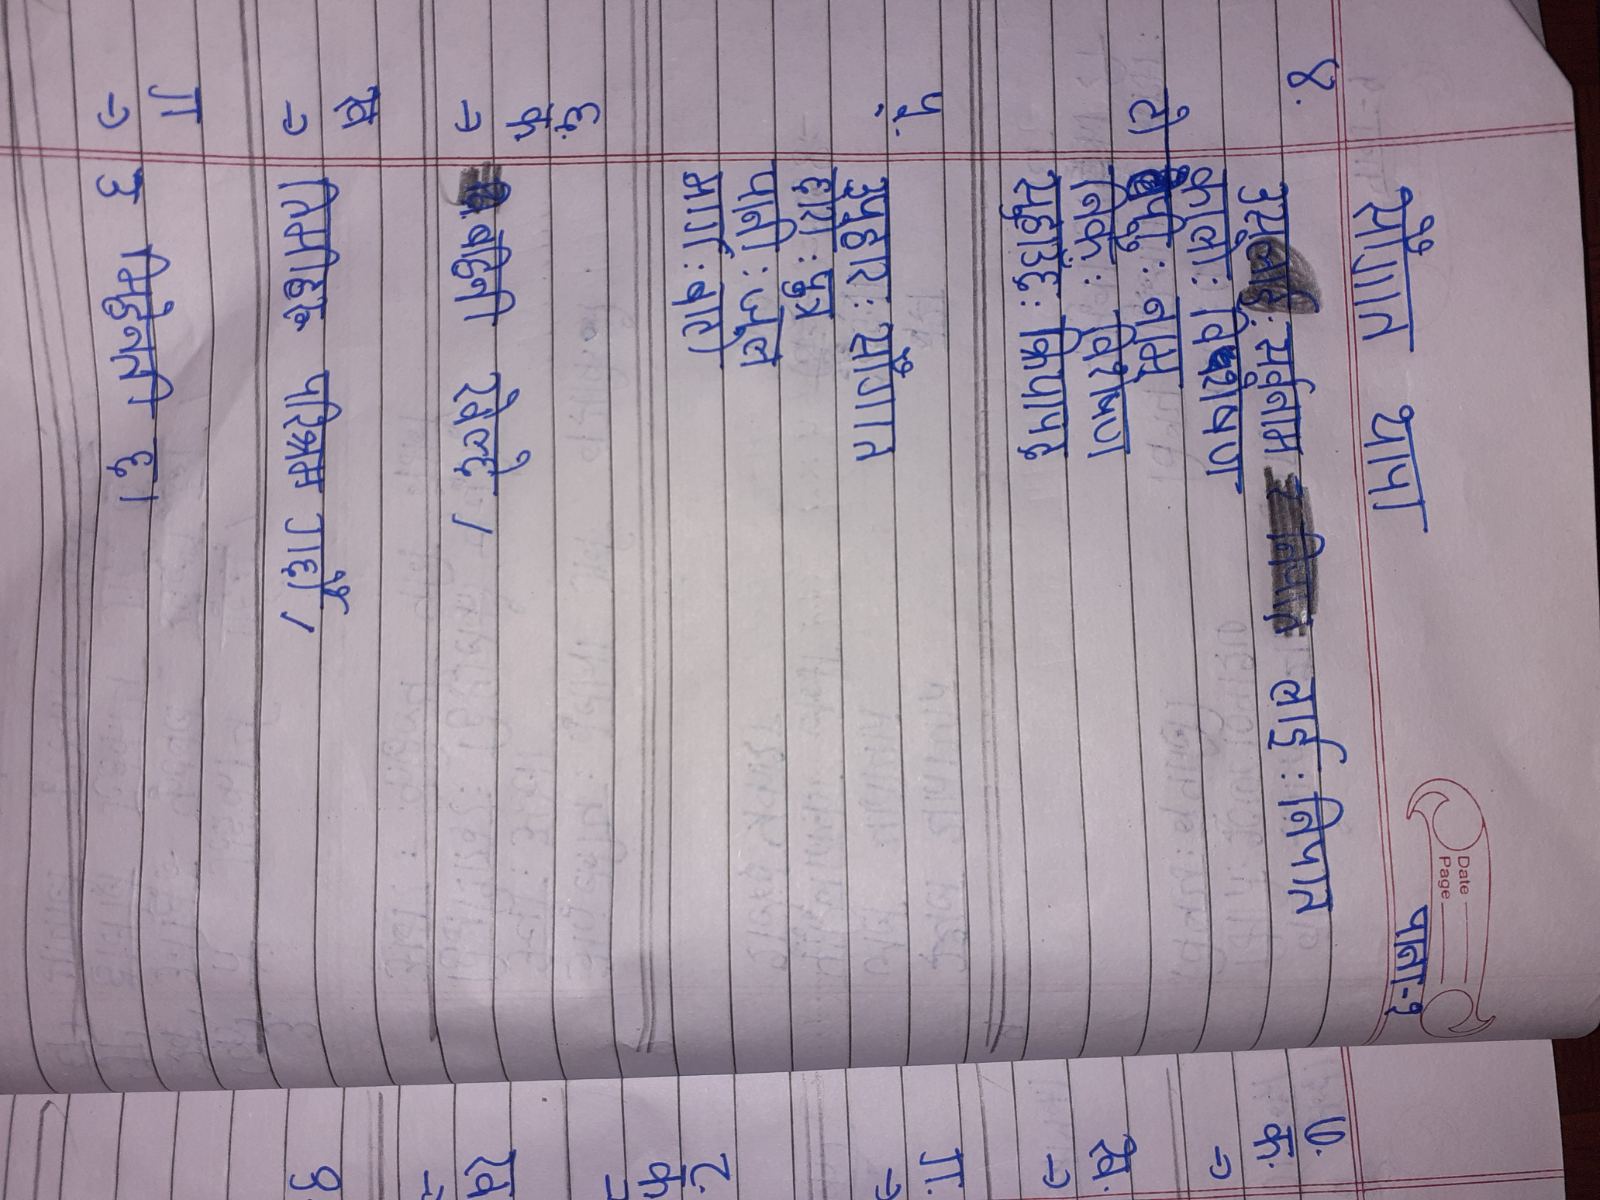 सौगात थापा
Date
Page
पाना-१
४. उसलाई : सर्वनाम लाई : निपात
काला : विशेषण
टोपी : नाम
निकै : विशेषण
सुहाउँछ : क्रियापद
५. उपहार : सौगात
छोरा : पुत्र
पानी : जल
मार्ग : बाटो
६.
क
⇒ बहिनी खेल्छे।
ख
⇒ तिमीहरू परिश्रम गर्छौ।
ग
⇒ ऊ मिहेनती छ।
७.
क.
⇒
ख.
⇒
ग.
⇒
८.
क
ख